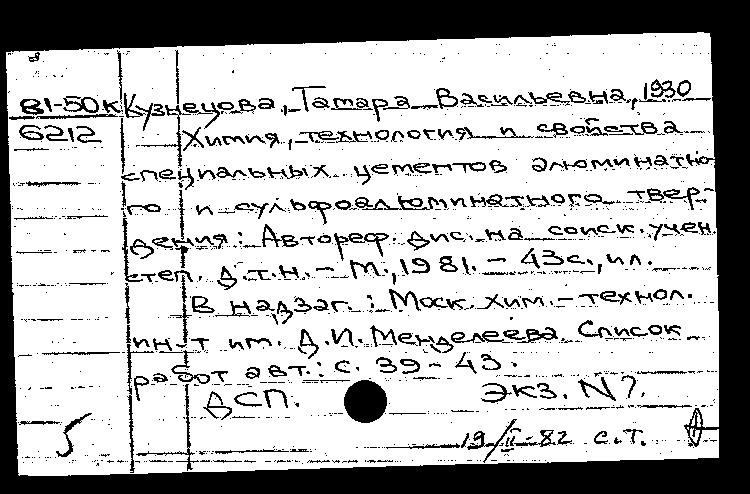 81-50к Кузнецова, Тамара Васильевна, 1930
6212 Химия, технология и свойства
специальных цементов алюминатно
го и сульфоалюминатного твер-
дения: Автореф. дис. на соиск. учен.
степ. Д.т.н. - М., 1981. - 43с., ил.
В надзаг.: Моск. хим.-технол.
ин-т им. Д.И. Менделеева. Список
работ авт.: с. 39-43.
ДСП. Экз. N 7.
5 19/II-82 с.т.